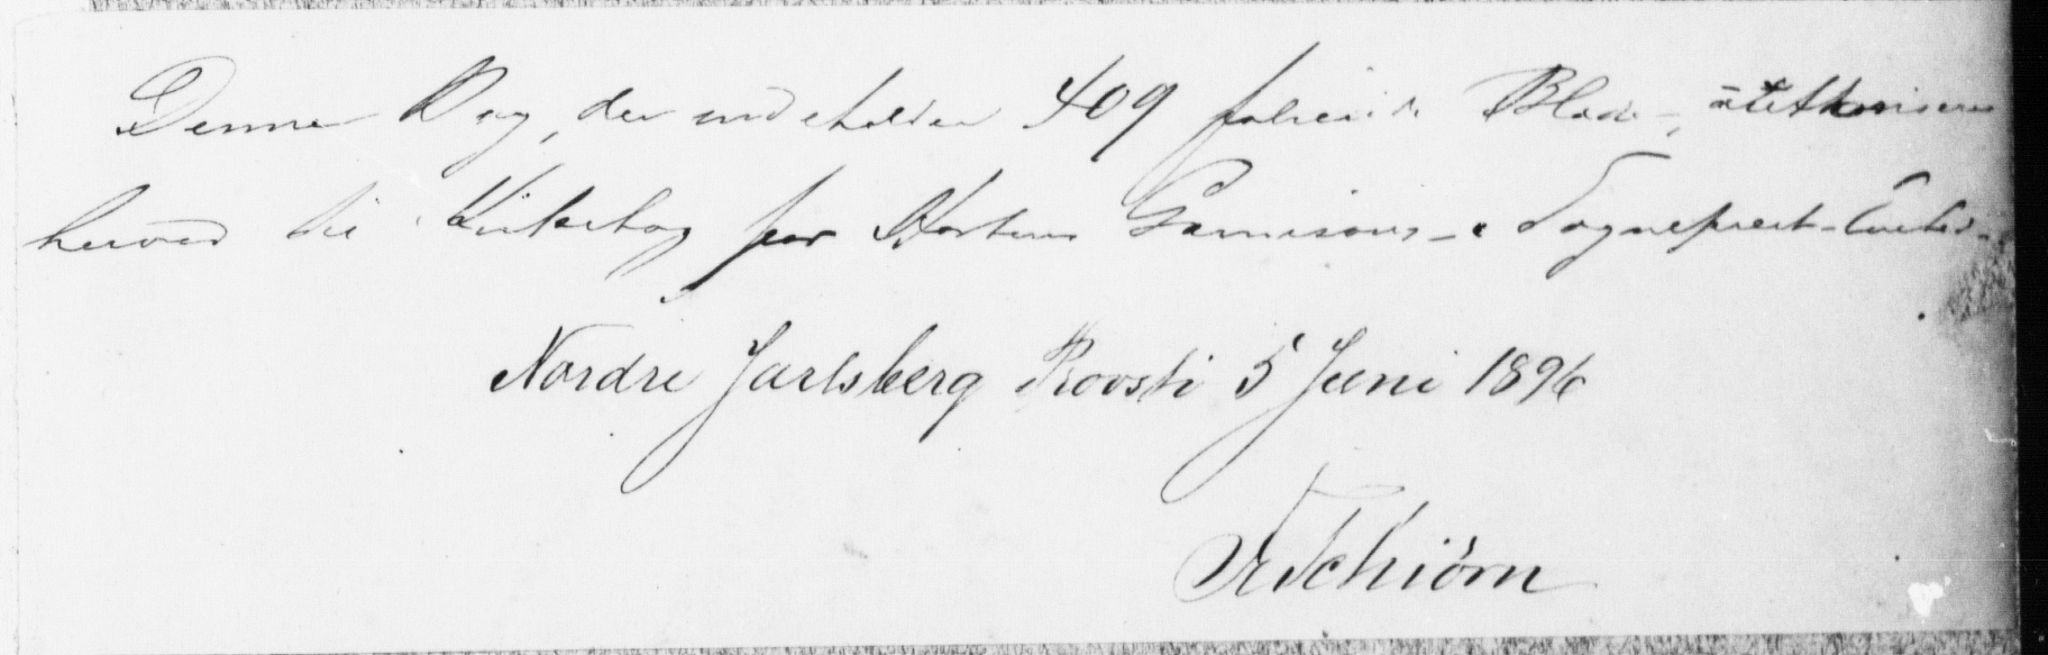 Denne Bog, der indeholder 409 folierede Blade, autthoriseres
herved til Kirkebog for Hortens Garnisons- Sognepræst-Embede.
Nordre Jarlsberg Provsti 5 Juni 1896
Schiørn